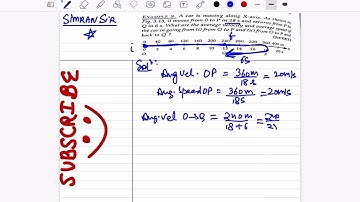 SIMRAN SIR
EXAMPLE 9. A car is moving along X-axis. As shown in
Fig. 3.15, it moves from O to P in 18 s and
Q in 6 s. What are the average velocity and average speed of
the car in going (i) from O to P and (ii) from O to P and
back to Q ?
i
0 40 80 120 160 200 240 280 320 360 400 m
6s
Solⁿ:
Avg vel. OP = 360m / 18s = 20m/s
Avg. Speed OP = 360m / 18s = 20m/s
Avg. vel O→Q = 240m / 18+6 = 
SUBSCRIBE